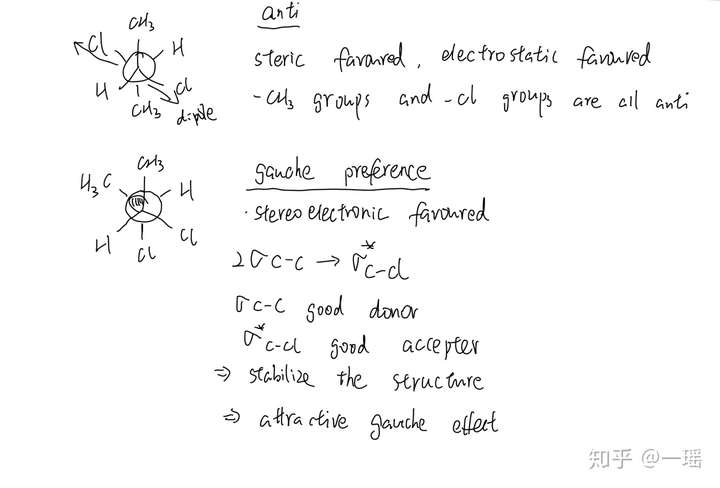 anti
CH3
Cl
H
H
Cl
CH3
dipole
steric favoured, electrostatic favoured
-CH3 groups and -Cl groups are all anti
gauche preference
CH3
H3C
H
H
Cl
Cl
·stereoelectronic favoured
2σC-C → σ*C-Cl
σC-C good donor
σ*C-Cl good accepter
⇒ stabilize the structure
⇒ attractive gauche effect
知乎 @一瑶